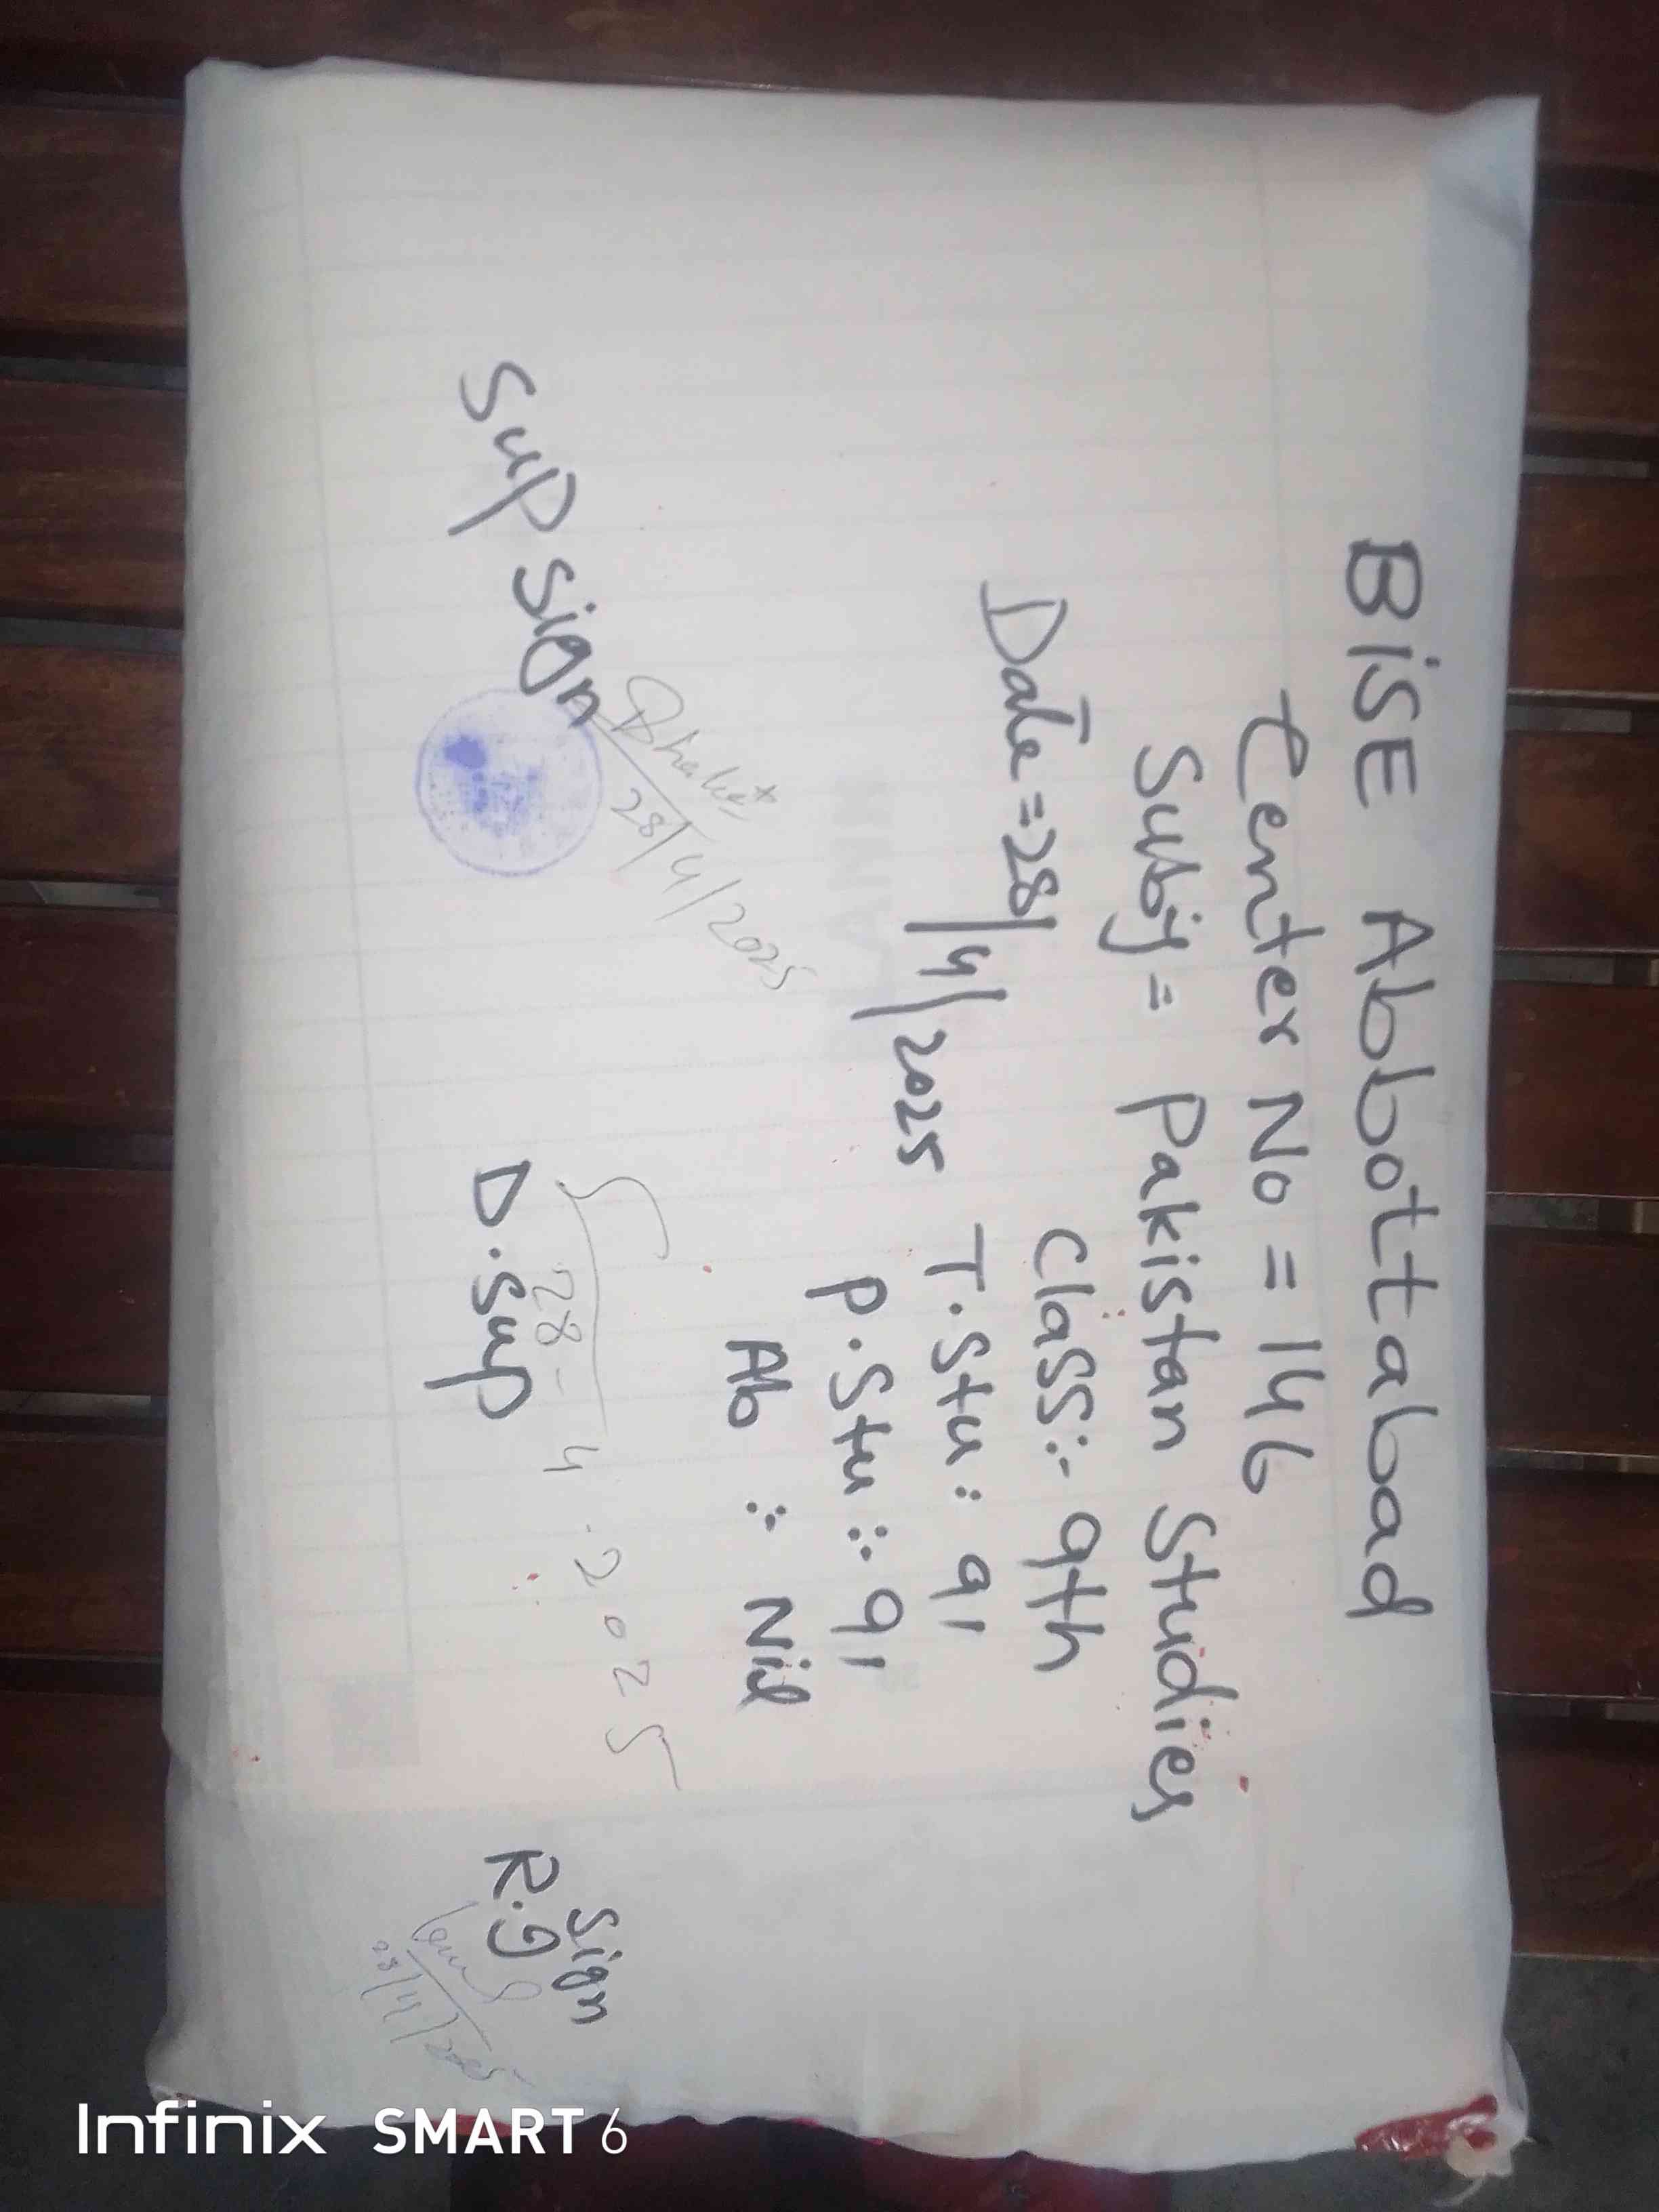 BiSE Abbottabad
Center No = 146
Subj = Pakistan Studies
Date = 28/4/2025
Class:- 9th
T.Stu: 91
P.Stu: 91
Ab: Nil
28/4/2025
Sup sign
28-4-2025
D.Sup
Sign
R.I
Infinix SMART 6